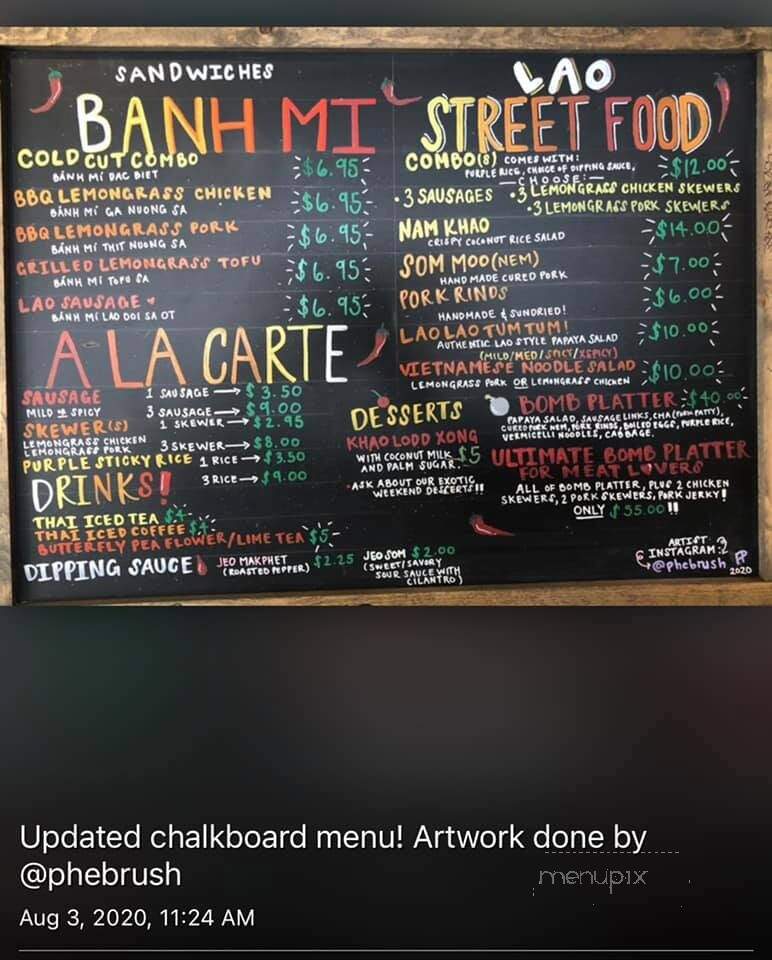 SANDWICHES
BANH MI
COLD CUT COMBO $6.95
BÁNH MÍ DAC BIET
BBQ LEMONGRASS CHICKEN $6.95
BÁNH MÍ GA NUONG SA
BBQ LEMONGRASS PORK $6.95
BÁNH MÍ THIT NUONG SA
GRILLED LEMONGRASS TOFU $6.95
BÁNH MÍ TOFU SA
LAO SAUSAGE $6.95
BÁNH MÍ LAO DOI SA OT
A LA CARTE
SAUSAGE 1 SAUSAGE → $3.50
MILD OR SPICY 3 SAUSAGE → $9.00
SKEWER(S) 1 SKEWER → $2.95
LEMONGRASS CHICKEN
LEMONGRASS PORK 3 SKEWER → $8.00
PURPLE STICKY RICE 1 RICE → $3.50
3 RICE → $9.00
DRINKS!
THAI ICED TEA $4
THAI ICED COFFEE $4
BUTTERFLY PEA FLOWER/LIME TEA $5
DIPPING SAUCE JEO MAKPHET $2.25
(ROASTED PEPPER)
JEO SOM $2.00
(SWEET/SAVORY
SOUR SAUCE WITH
CILANTRO)
LAO
STREET FOOD
COMBO(S) COMES WITH: $12.00
PURPLE RICE, CHOICE OF DIPPING SAUCE,
—CHOOSE:—
• 3 SAUSAGES • 3 LEMONGRASS CHICKEN SKEWERS
• 3 LEMONGRASS PORK SKEWERS
NAM KHAO $14.00
CRISPY COCONUT RICE SALAD
SOM MOO (NEM) $7.00
HAND MADE CURED PORK
PORK RINDS $6.00
HANDMADE & SUNDRIED!
LAO LAO TUM TUM! $10.00
AUTHENTIC LAO STYLE PAPAYA SALAD
(MILD/MED/SPICY/XSPICY)
VIETNAMESE NOODLE SALAD $10.00
LEMONGRASS PORK OR LEMONGRASS CHICKEN
DESSERTS
KHAO LODD XONG
WITH COCONUT MILK $5
AND PALM SUGAR.
• ASK ABOUT OUR EXOTIC
WEEKEND DESSERTS!!
BOMB PLATTER $40.00
PAPAYA SALAD, SAUSAGE LINKS, CHA (PORK PATTY),
CURED PORK NEM, PORK RINDS, BOILED EGGS, PURPLE RICE,
VERMICELLI NOODLES, CABBAGE.
ULTIMATE BOMB PLATTER
FOR MEAT LOVERS
ALL OF BOMB PLATTER, PLUS 2 CHICKEN
SKEWERS, 2 PORK SKEWERS, PORK JERKY!
ONLY $55.00!!
ARTIST
INSTAGRAM:
@phebrush
2020
Updated chalkboard menu! Artwork done by
@phebrush
menupix
Aug 3, 2020, 11:24 AM